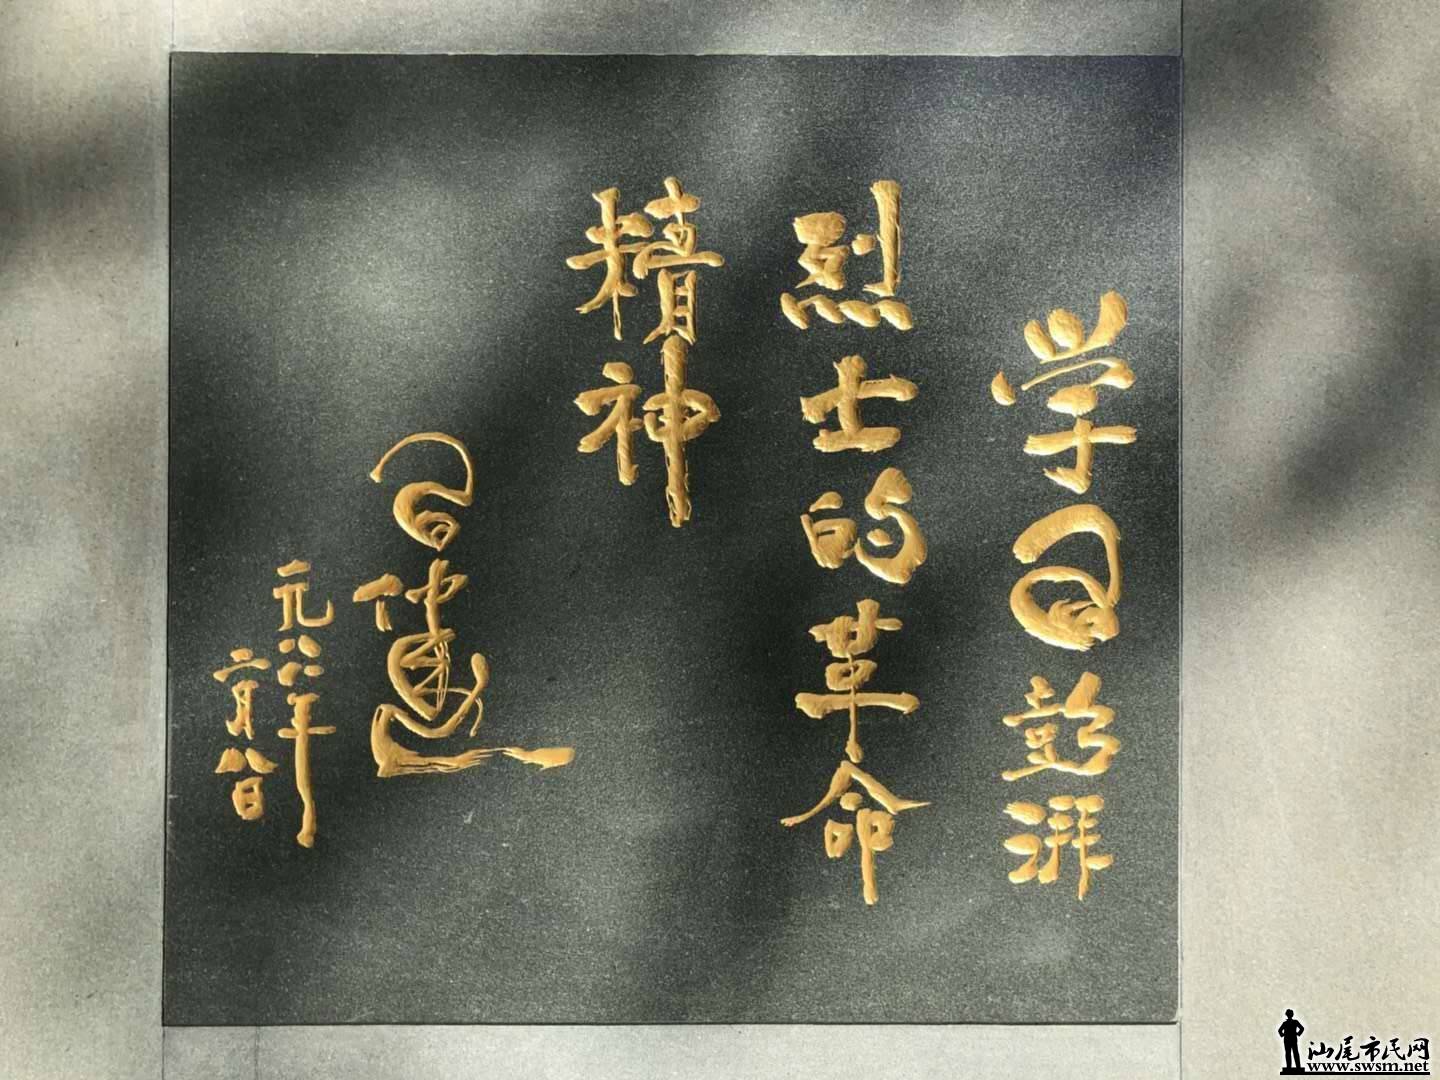 学习彭湃
烈士的革命
精神
习仲勋
元八六年
二月八日
汕尾市民网
www.swsm.net